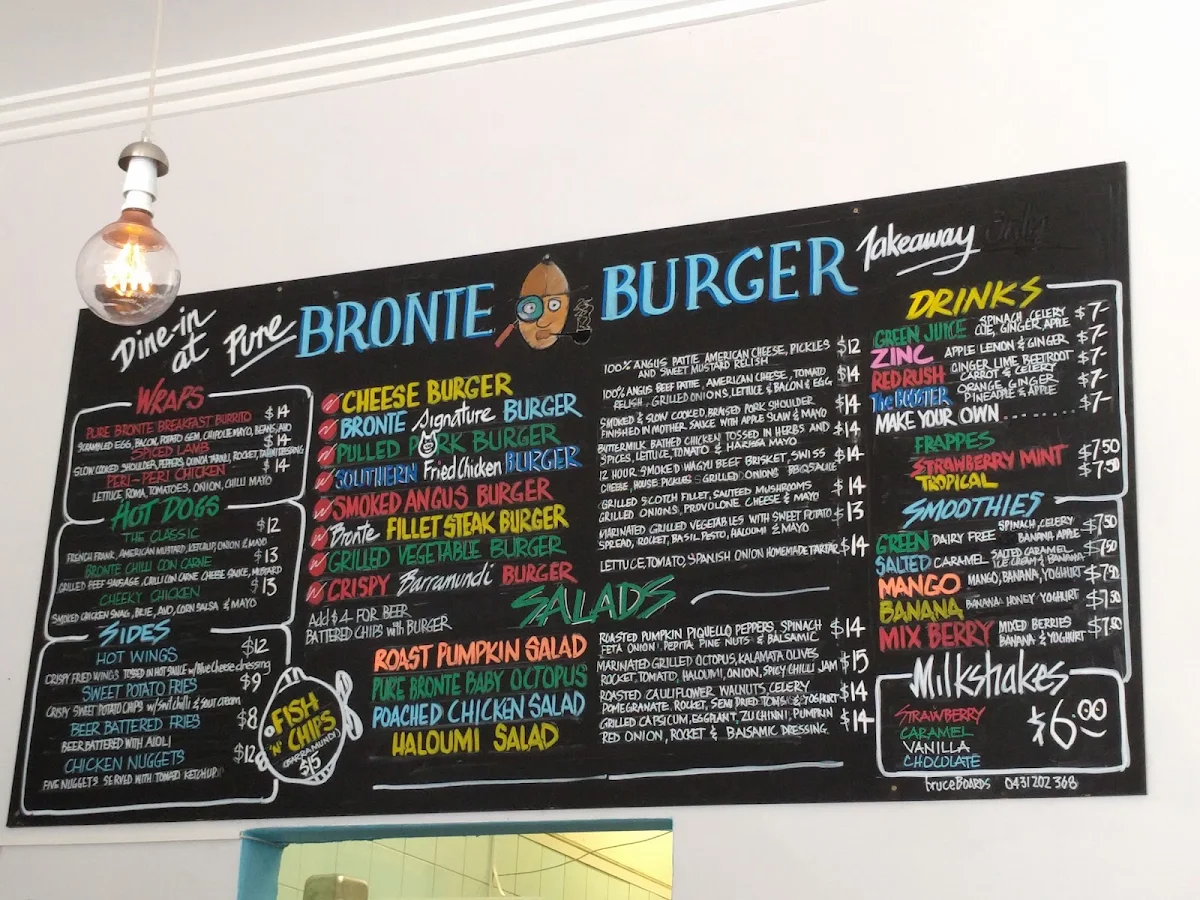 Dine-in at Pure BRONTE BURGER Takeaway
WRAPS
PURE BRONTE BREAKFAST BURRITO $14
SCRAMBLED EGG, BACON, POTATO GEM, CHIPOTLE MAYO, BEANS, AVO
SPICED LAMB $14
SLOW COOKED SHOULDER, PEPPERS, QUINOA, ROCKET, DRESSING
PERI-PERI CHICKEN $14
LETTUCE, ROMA, TOMATOES, ONION, CHILLI MAYO
HOT DOGS
THE CLASSIC $12
FRENCH FRANK, AMERICAN MUSTARD, KETCHUP, ONION & MAYO
BRONTE CHILLI CON CARNE $13
GRILLED BEEF SAUSAGE, CHILLI CON CARNE CHEESE SAUCE, MUSTARD
CHEEKY CHICKEN $13
SMOKED CHICKEN SNAG, BRIE, AVO, CORN SALSA & MAYO
SIDES
HOT WINGS $12
CRISPY FRIED WINGS TOSSED IN HOT SAUCE w/ Blue Cheese dressing
SWEET POTATO FRIES $9
CRISPY SWEET POTATO CHIPS w/ Swt chilli & sour cream
BEER BATTERED FRIES $8
BEER BATTERED WITH AIOLI
CHICKEN NUGGETS $12
FIVE NUGGETS SERVED WITH TOMATO KETCHUP
FISH
'N' CHIPS
(BARRAMUNDI)
$15
CHEESE BURGER
BRONTE Signature BURGER
PULLED PORK BURGER
SOUTHERN Fried Chicken BURGER
SMOKED ANGUS BURGER
Bronte FILLET STEAK BURGER
GRILLED VEGETABLE BURGER
CRISPY Barramundi BURGER
Add $4 FOR BEER
BATTERED CHIPS with BURGER
100% ANGUS PATTIE, AMERICAN CHEESE, PICKLES $12
AND SWEET MUSTARD RELISH
100% ANGUS BEEF PATTIE, AMERICAN CHEESE, TOMATO $14
RELISH, GRILLED ONIONS, LETTUCE & BACON & EGG
SMOKED & SLOW COOKED, BRAISED PORK SHOULDER $14
FINISHED IN MOTHER SAUCE WITH APPLE SLAW & MAYO
BUTTERMILK BATHED CHICKEN TOSSED IN HERBS AND $14
SPICES, LETTUCE, TOMATO & HARISSA MAYO
12 HOUR, SMOKED WAGYU BEEF BRISKET, SWISS $14
CHEESE, HOUSE PICKLES & GRILLED ONIONS BBQ SAUCE
GRILLED SCOTCH FILLET, SAUTEED MUSHROOMS $14
GRILLED ONIONS, PROVOLONE CHEESE & MAYO
MARINATED GRILLED VEGETABLES WITH SWEET POTATO $13
SPREAD, ROCKET, BASIL PESTO, HALOUMI & MAYO
LETTUCE, TOMATO, SPANISH ONION HOMEMADE TARTAR $14
SALADS
ROAST PUMPKIN SALAD
PURE BRONTE BABY OCTOPUS
POACHED CHICKEN SALAD
HALOUMI SALAD
ROASTED PUMPKIN PIQUELLO PEPPERS, SPINACH $14
FETA ONION, PEPITA, PINE NUTS & BALSAMIC
MARINATED GRILLED OCTOPUS, KALAMATA OLIVES $15
ROCKET, TOMATO, HALOUMI, ONION, SPICY CHILLI JAM
ROASTED CAULIFLOWER WALNUTS, CELERY $14
POMEGRANATE, ROCKET, SEMI DRIED TOMS & YOGHURT
GRILLED CAPSICUM, EGGPLANT, ZUCHINNI, PUMPKIN $14
RED ONION, ROCKET & BALSAMIC DRESSING.
DRINKS
GREEN JUICE SPINACH, CELERY $7-
CUE, GINGER, APPLE
ZINC APPLE LEMON & GINGER $7-
RED RUSH GINGER LIME BEETROOT $7-
CARROT & CELERY
The BOOSTER ORANGE, GINGER $7-
PINEAPPLE & APPLE
MAKE YOUR OWN ......... $7-
FRAPPES
STRAWBERRY MINT $7.50
TROPICAL $7.50
SMOOTHIES
GREEN DAIRY FREE SPINACH, CELERY $7.50
BANANA APPLE
SALTED CARAMEL SALTED CARAMEL $7.50
ICE CREAM & BANANA
MANGO MANGO, BANANA, YOGHURT $7.50
BANANA BANANA HONEY YOGHURT $7.50
MIX BERRY MIXED BERRIES $7.50
BANANA & YOGHURT
Milkshakes
STRAWBERRY
CARAMEL
VANILLA
CHOCOLATE
$6.00
bruceBoards 0431 202 368